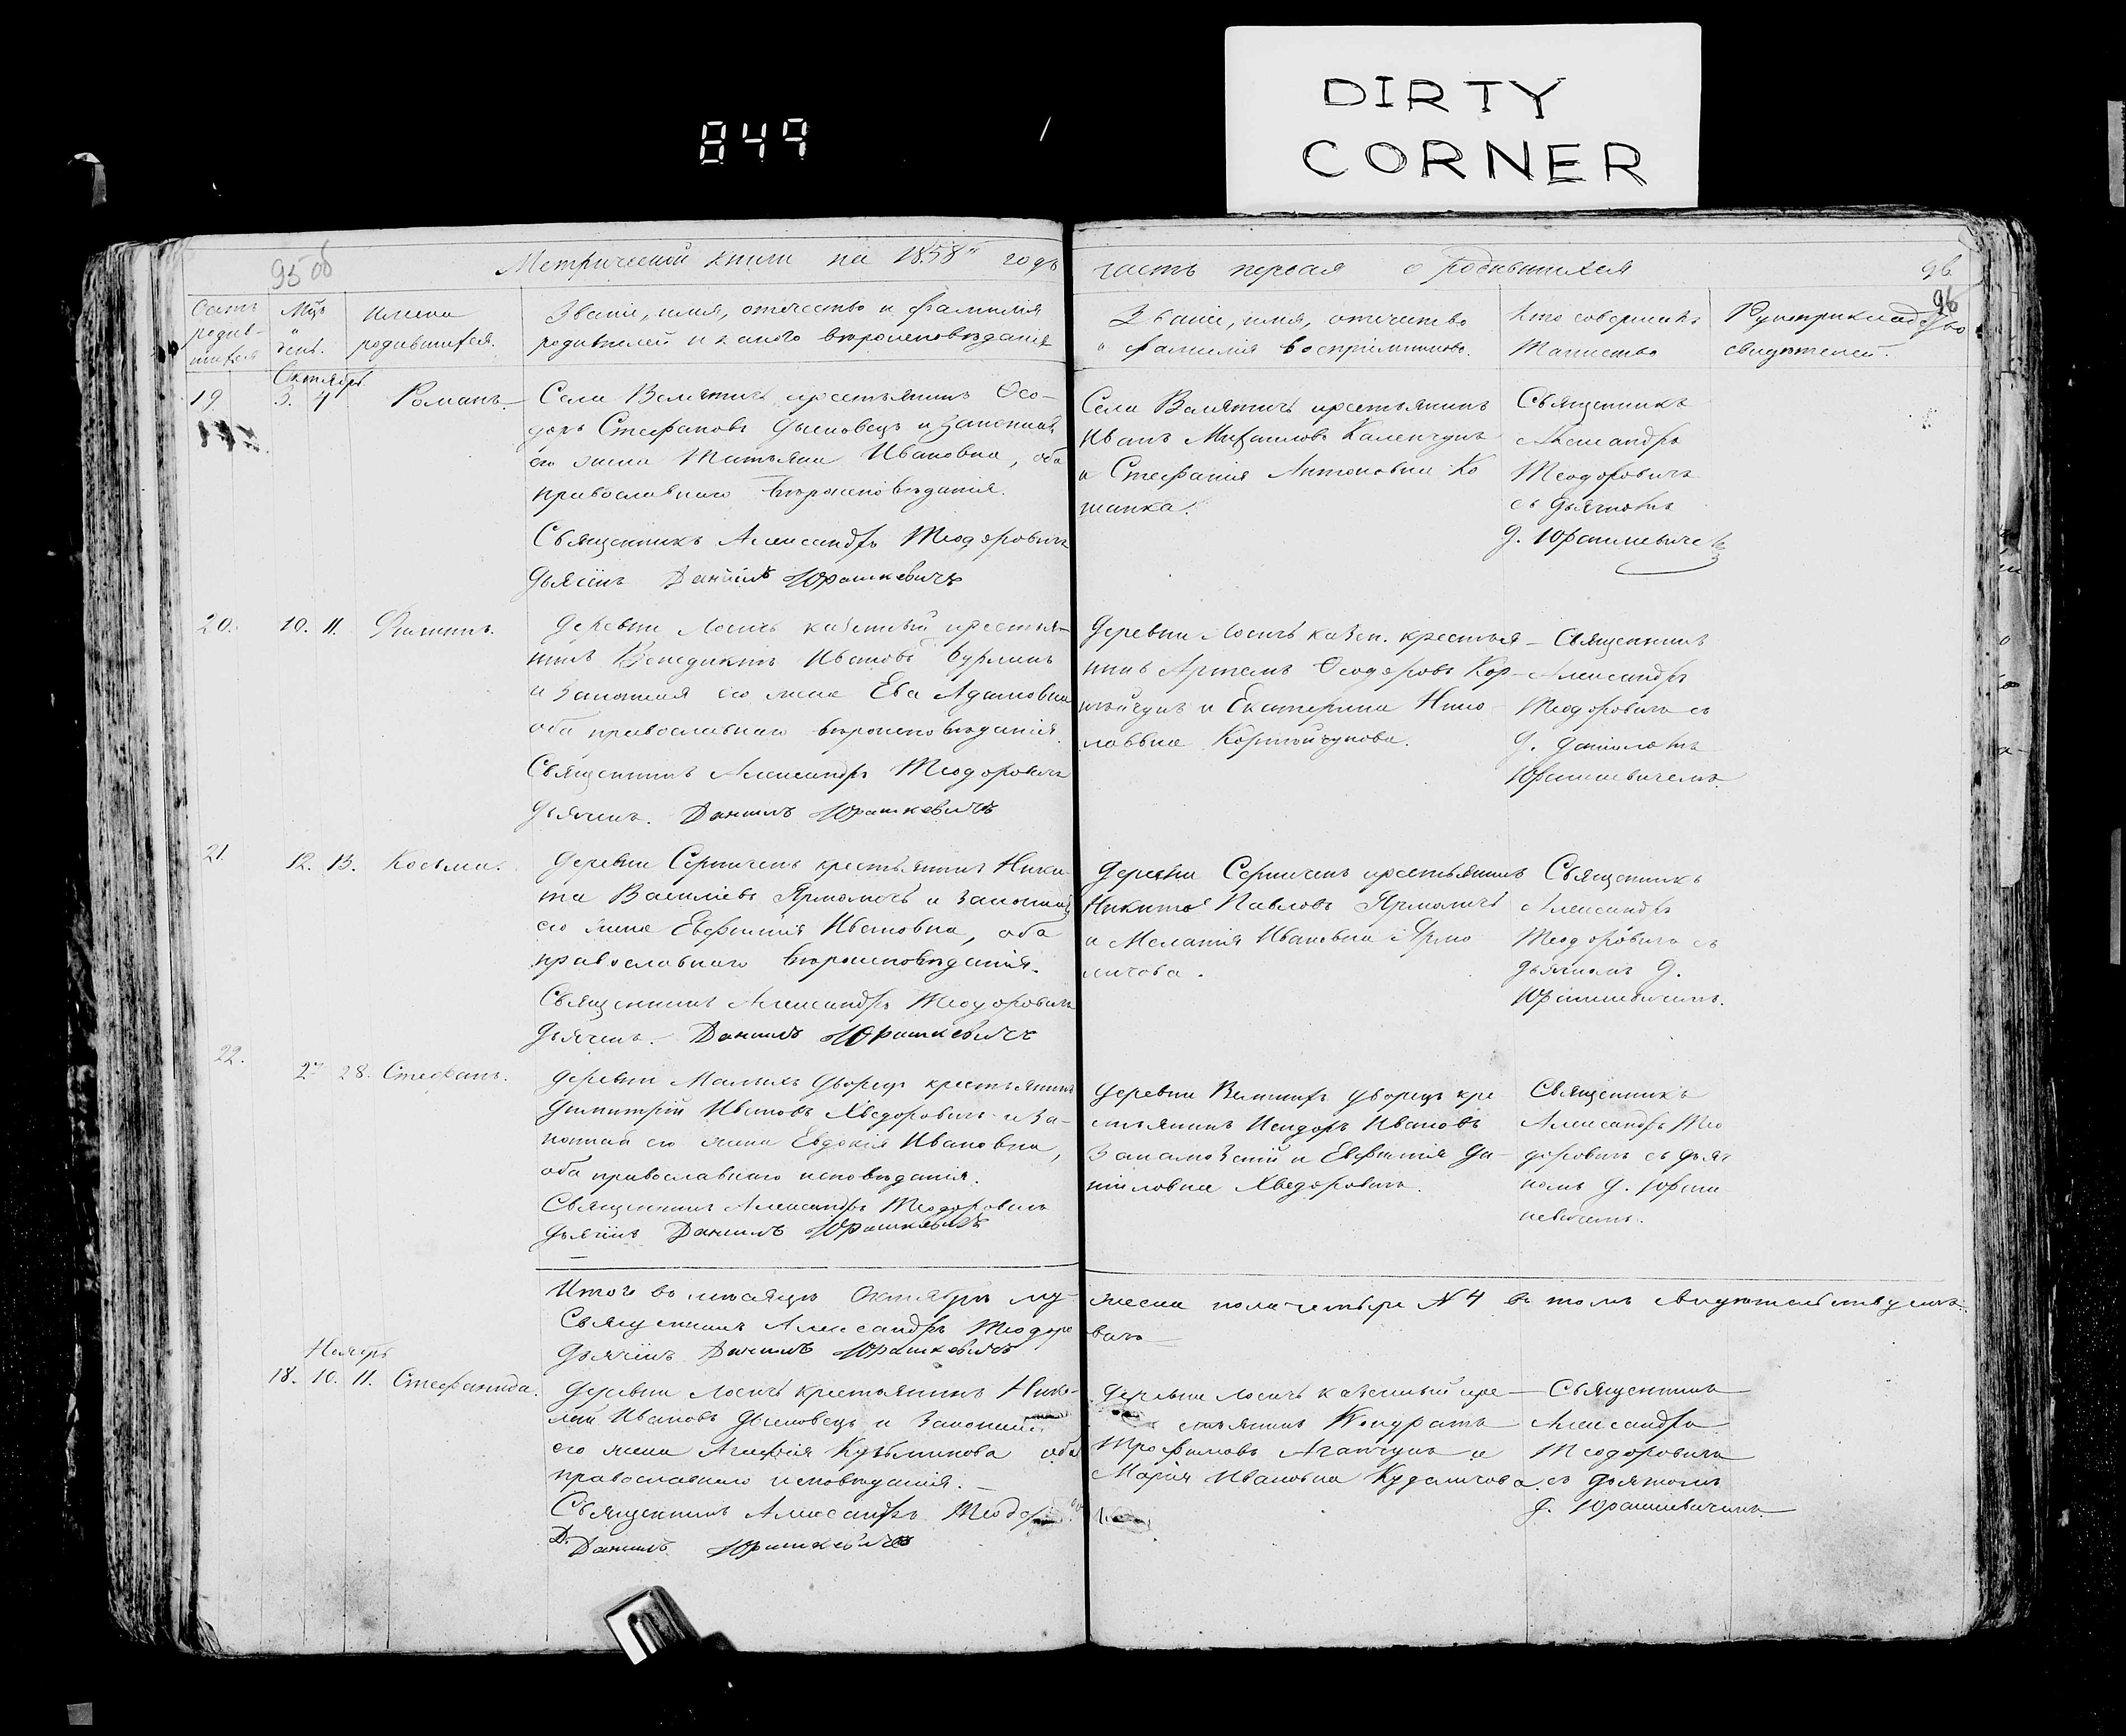 DIRTY
CORNER
849
95 об
Метрической книги на 1858й годъ
часть первая о родившихся
96
96
Счетъ родив-шихся
Мцъ и день.
Имена родившихся.
Званіе, имя, отчество и фамилія
родителей и какого вѣроисповѣданія
Званіе, имя, отчество
и фамилія воспріемниковъ.
Кто совершалъ
Таинство
Рукоприкладство
свидѣтелей.
Октябрь
19. 3. 4 Романъ.
Села Велятичь крестьянинъ Ѳео-
доръ Стефановъ и законная
его жена Татьяна Ивановна, оба
православнаго вѣроисповѣданія.
Священникъ Александръ Теодоровичъ
Дьячекъ Даніилъ Юрашкевичъ
Села Велятичь крестьянинъ
Иванъ Михаиловъ Каленчукъ
и Стефанія Антоновна Ко
шанка.
Священникъ
Александръ
Теодоровичъ
съ дьячкомъ
Д. Юрашкевиче
20. 10. 11. Филиппъ.
Деревни Лосичь казенный крестья-
нинъ Венедиктъ Ивановъ Бурлакъ
и законная его жена Ева Адамовна
оба православнаго вѣроисповѣданія
Священникъ Александръ Теодоровичъ
Дьячекъ. Даниилъ Юрашкевичъ
Деревни Лосичь казен. крестья-
нинъ Артемъ Ѳеодоровъ Кор-
нейчукъ и Екатерина Нико
лаевна Корнейчукова.
Священникъ
Александръ
Теодоровичъ съ
Д. Даниломъ
Юрашкевичемъ.
21. 12. 13. Косьма.
Деревни крестьянинъ Ники-
та Васильевъ Ярмоличь и законная
его жена Евфимія Ивановна, оба
православнаго вѣроисповѣданія.
Священникъ Александръ Теодоровичъ
Дьячекъ. Даниилъ Юрашкевичъ
Деревни крестьянинъ
Никита Павловъ Ярмоличь
и Меланія Ивановна Ярмо
личова.
Священникъ
Александръ
Теодоровичъ съ
дьячкомъ Д.
Юрашкевичемъ.
22. 27 28. Стефанъ.
Деревни Малыхъ Дворецъ крестьянинъ
Димитрій Ивановъ Хведоровичъ и за-
конная его жена Евдокія Ивановна,
оба православнаго исповѣданія.
Священникъ Александръ Теодоровичъ
Дьячекъ Даниилъ Юрашкевичъ
Деревни Дворецъ кре
стьянинъ Исидоръ Ивановъ
и Евфимія Да-
ниловна Хведоровичъ.
Священникъ
Александръ Тео
доровичъ съ дьяч
комъ Д. Юраш
кевичемъ.
Итого во мѣсяцѣ Октябрѣ му-
жеска пола четыре № 4 въ томъ свидѣтельствуемъ.
Священникъ Александръ Теодоро
вичъ
Дьячекъ Даниилъ Юрашкевичъ
Ноябрь
18. 10. 11. Стефанида.
Деревни Лосичь крестьянинъ Нико-
лай Ивановъ и законная
его жена Агафія Кузьминова оба
православнаго исповѣданія.
Священникъ Александръ Теодор
Д. Даниилъ Юрашкевичъ
Деревни Лосичь казенный кре-
стьянинъ Кондратъ
Трофимовъ и
Марія Ивановна
Священникъ
Александръ
Теодоровичъ
съ дьячкомъ
Д. Юрашкевичемъ.